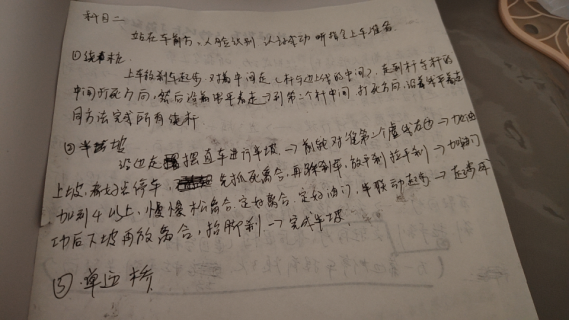 科目二
站在车前方、人脸识别 认证成功 听指令上车准备
①绕桩
上车检到车起步,对着中间走(杆与边上线的中间),走到杆与杆的
中间打死方向,然后沿着水平走→到第二个杆中间,打死方向,沿着水平走
同方法完成所有绕杆.
②半坡
沿边走 摆直车进行半坡.→前轮对准第二个虚线 →加油
上坡,停车, 先抓死离合,再踩刹车,放手刹拉手刹→加油门
加到4以上,慢慢松离合.定好离合.定好油门,半联动起步→起步成
功后下坡再放离合,抬脚刹→完成半坡.
③.单边桥